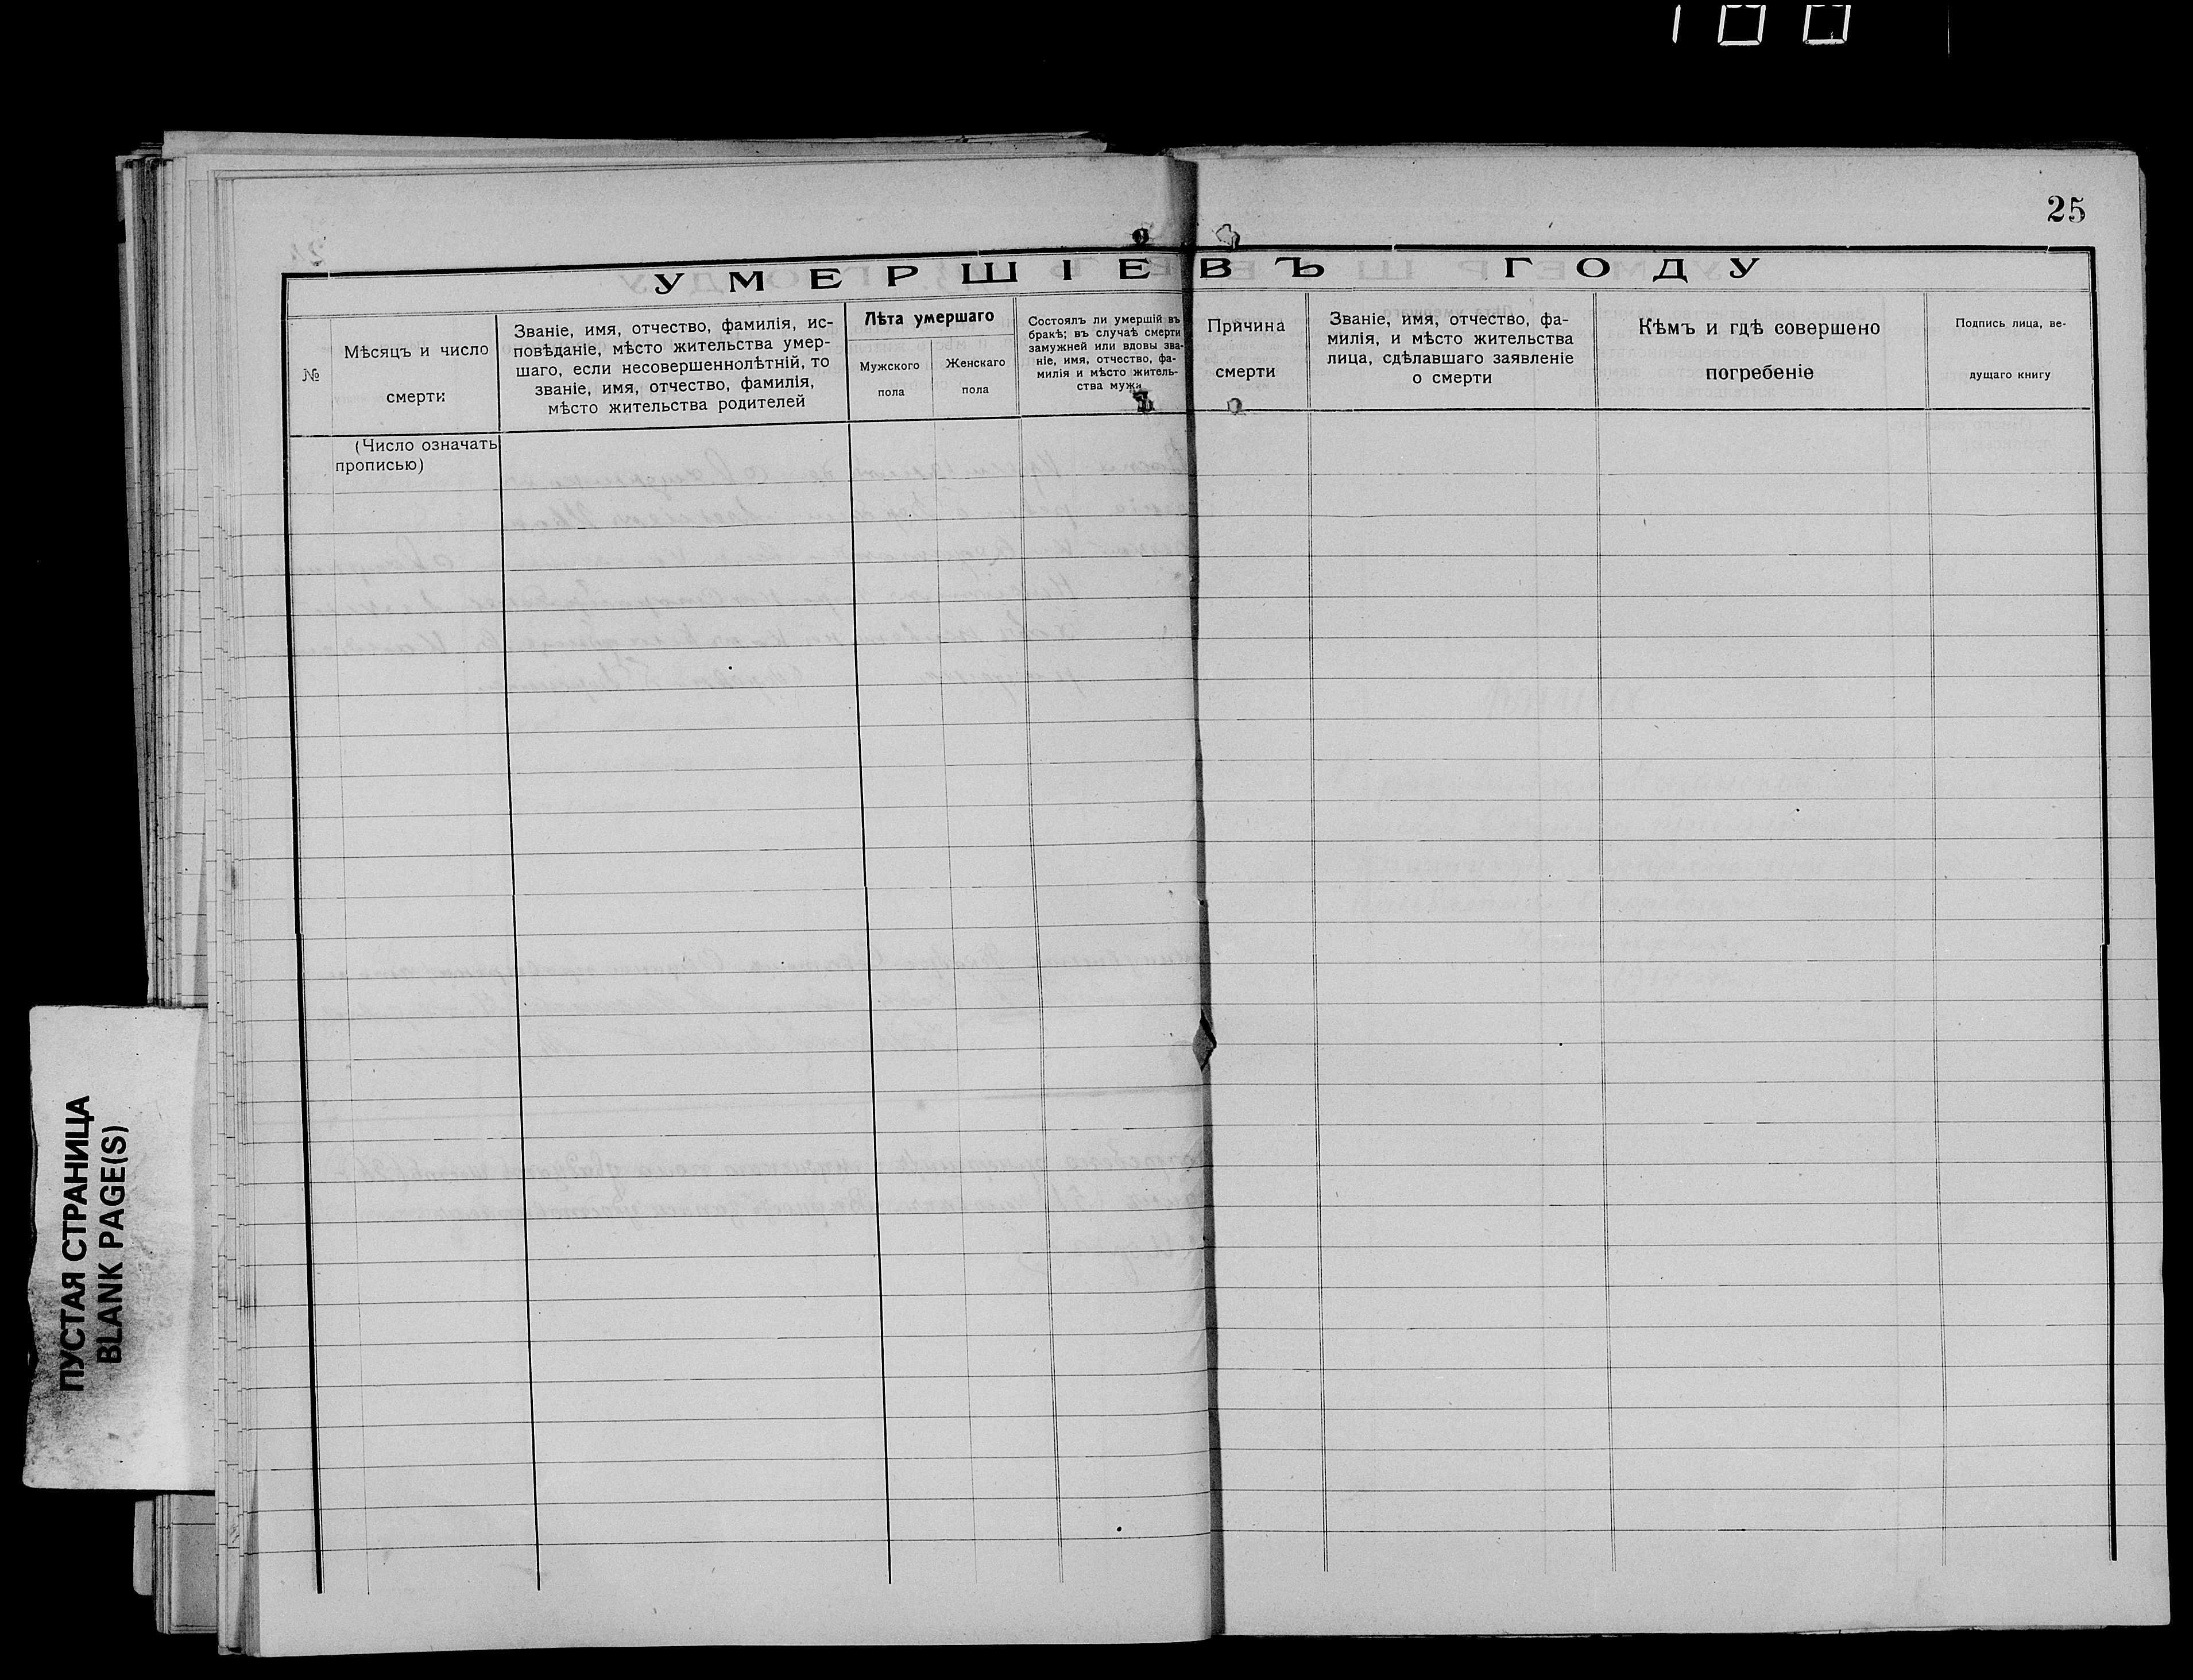 100
25
УМЕРШІЕ ВЪ ГОДУ
№
Мѣсяцъ и число
смерти
Званіе, имя, отчество, фамилія, ис-
повѣданіе, мѣсто жительства умер-
шаго, если несовершеннолѣтній, то
званіе, имя, отчество, фамилія,
мѣсто жительства родителей
Лѣта умершаго
Мужского
пола
Женскаго
пола
Состоялъ ли умершій въ
бракѣ; въ случаѣ смерти
замужней или вдовы зва-
ніе, имя, отчество, фа-
милія и мѣсто житель-
ства мужа
Причина
смерти
Званіе, имя, отчество, фа-
милія, и мѣсто жительства
лица, сдѣлавшаго заявленіе
о смерти
Кѣмъ и гдѣ совершено
погребеніе
Подпись лица, ве-
дущаго книгу
(Число означать
прописью)
ПУСТАЯ СТРАНИЦА
BLANK PAGE(S)